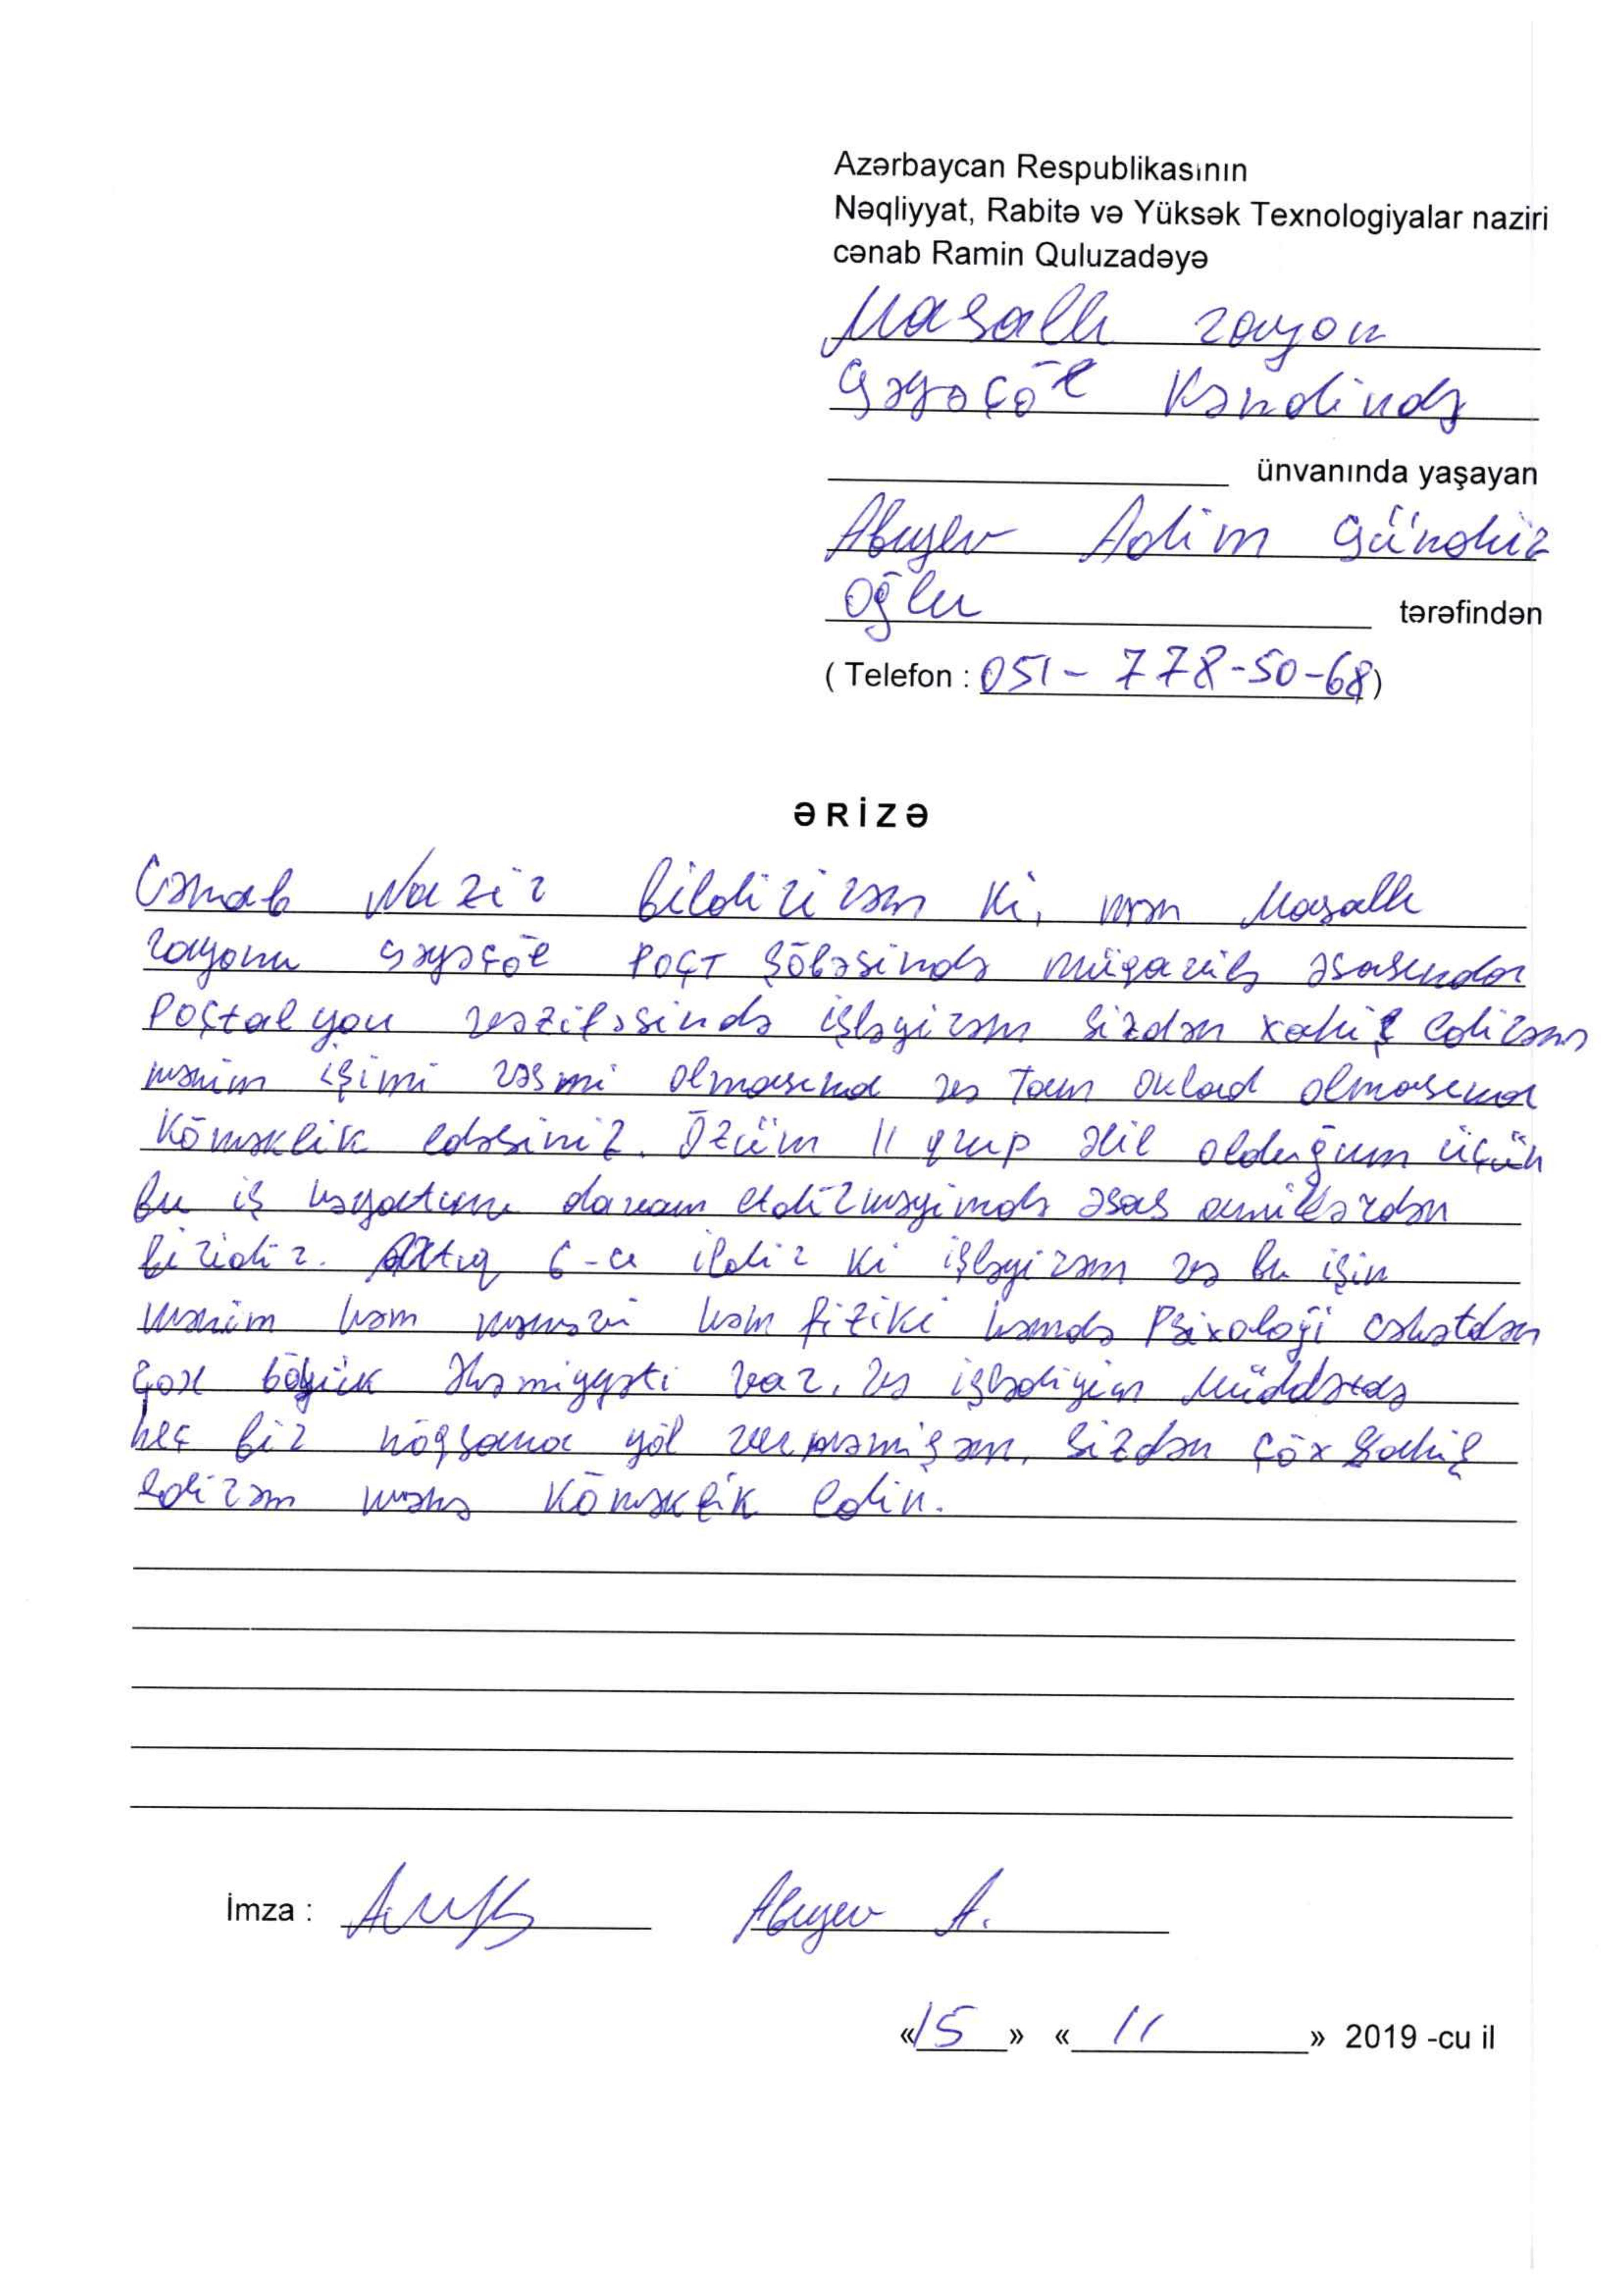 Azərbaycan Respublikasının
Nəqliyyat, Rabitə və Yüksək Texnologiyalar naziri
cənab Ramin Quluzadəyə
Masallı rayon
Qəyəçöl Kəndində
ünvanında yaşayan
Abıyev Adim Gündüz
oğlu
tərəfindən
( Telefon : 051- 778-50-68)
ƏRİZƏ
Cənab Nazir bildirirəm ki, mən Masallı
rayonu Qəyəçöl Poçt Şöbəsində müqavilə əsasında
Poçtalyon vəzifəsində işləyirəm sizdən xahiş edirəm
mənim işimi rəsmi olmasına və Tam oklad olmasına
Köməklik edəsiniz. Özüm II qrup əlil olduğum üçün
bu iş həyatımı davam etdirməyimdə əsas amillərdən
biridir. Artıq 6-cı ildir ki işləyirəm və bu işin
mənim həm mənəvi həm fiziki həmdə Psixoloği cəhətdən
çox böyük əhəmiyyəti var, və işlədiyim Müddətdə
heç bir nöqsana yol verməmişəm, Sizdən çöx xahiş
edirəm mənə Köməklik edin.
İmza : Abıyev A.
«15» « 11 » 2019 -cu il